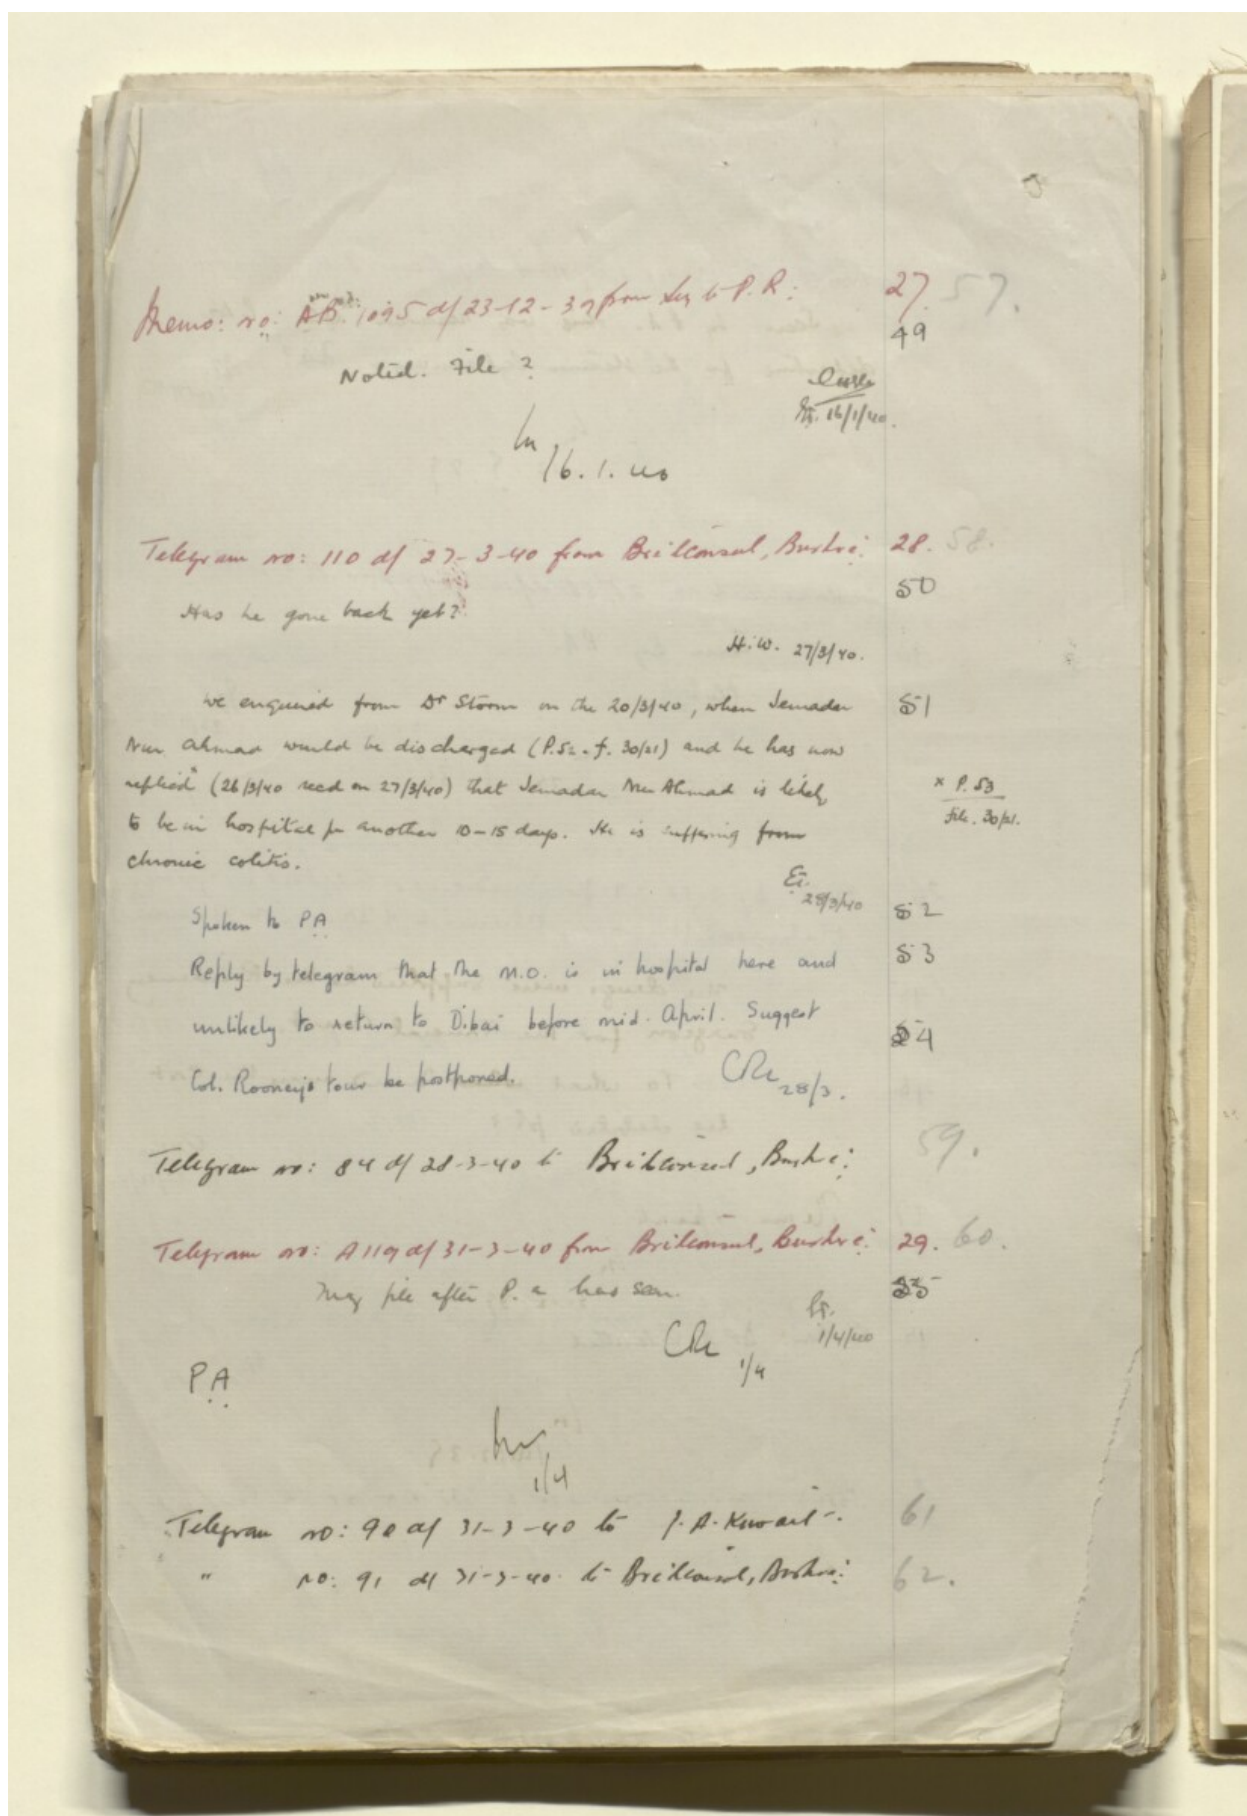 Memo: no: AB. 1095 d/ 23-12-39 from Secy to P.R: 27. 57.
49
Noted. File ?
16/1/40.
16.1.40
Telegram no: 110 d/ 27-3-40 from Britconsul, Bushre: 28. 58.
50
Has he gone back yet?
H.W. 27/3/40.
We enquired from Dr Storm on the 20/3/40, when Jemadar 51
Nur Ahmad would be discharged (P.52. f. 30/21) and he has now
replied x (26/3/40 recd on 27/3/40) that Jemadar Nur Ahmad is likely x P. 53
to be in hospital for another 10-15 days. He is suffering from File. 30/21.
chronic colitis.
28/3/40
Spoken to PA 52
Reply by telegram that the M.O. is in hospital here and 53
unlikely to return to Dibai before mid-April. Suggest 54
Col. Rooney's tour be postponed.
28/3.
Telegram no: 84 d/ 28-3-40 to Britconsul, Bushre: 59.
Telegram no: A119 d/ 31-3-40 from Britconsul, Bushre: 29. 60.
55
May file after P.A has seen.
1/4/40
1/4
P.A
1/4
Telegram no: 90 d/ 31-3-40 to P.A. Kuwait. 61
" no: 91 d/ 31-3-40 to Britconsul, Bushre: 62.